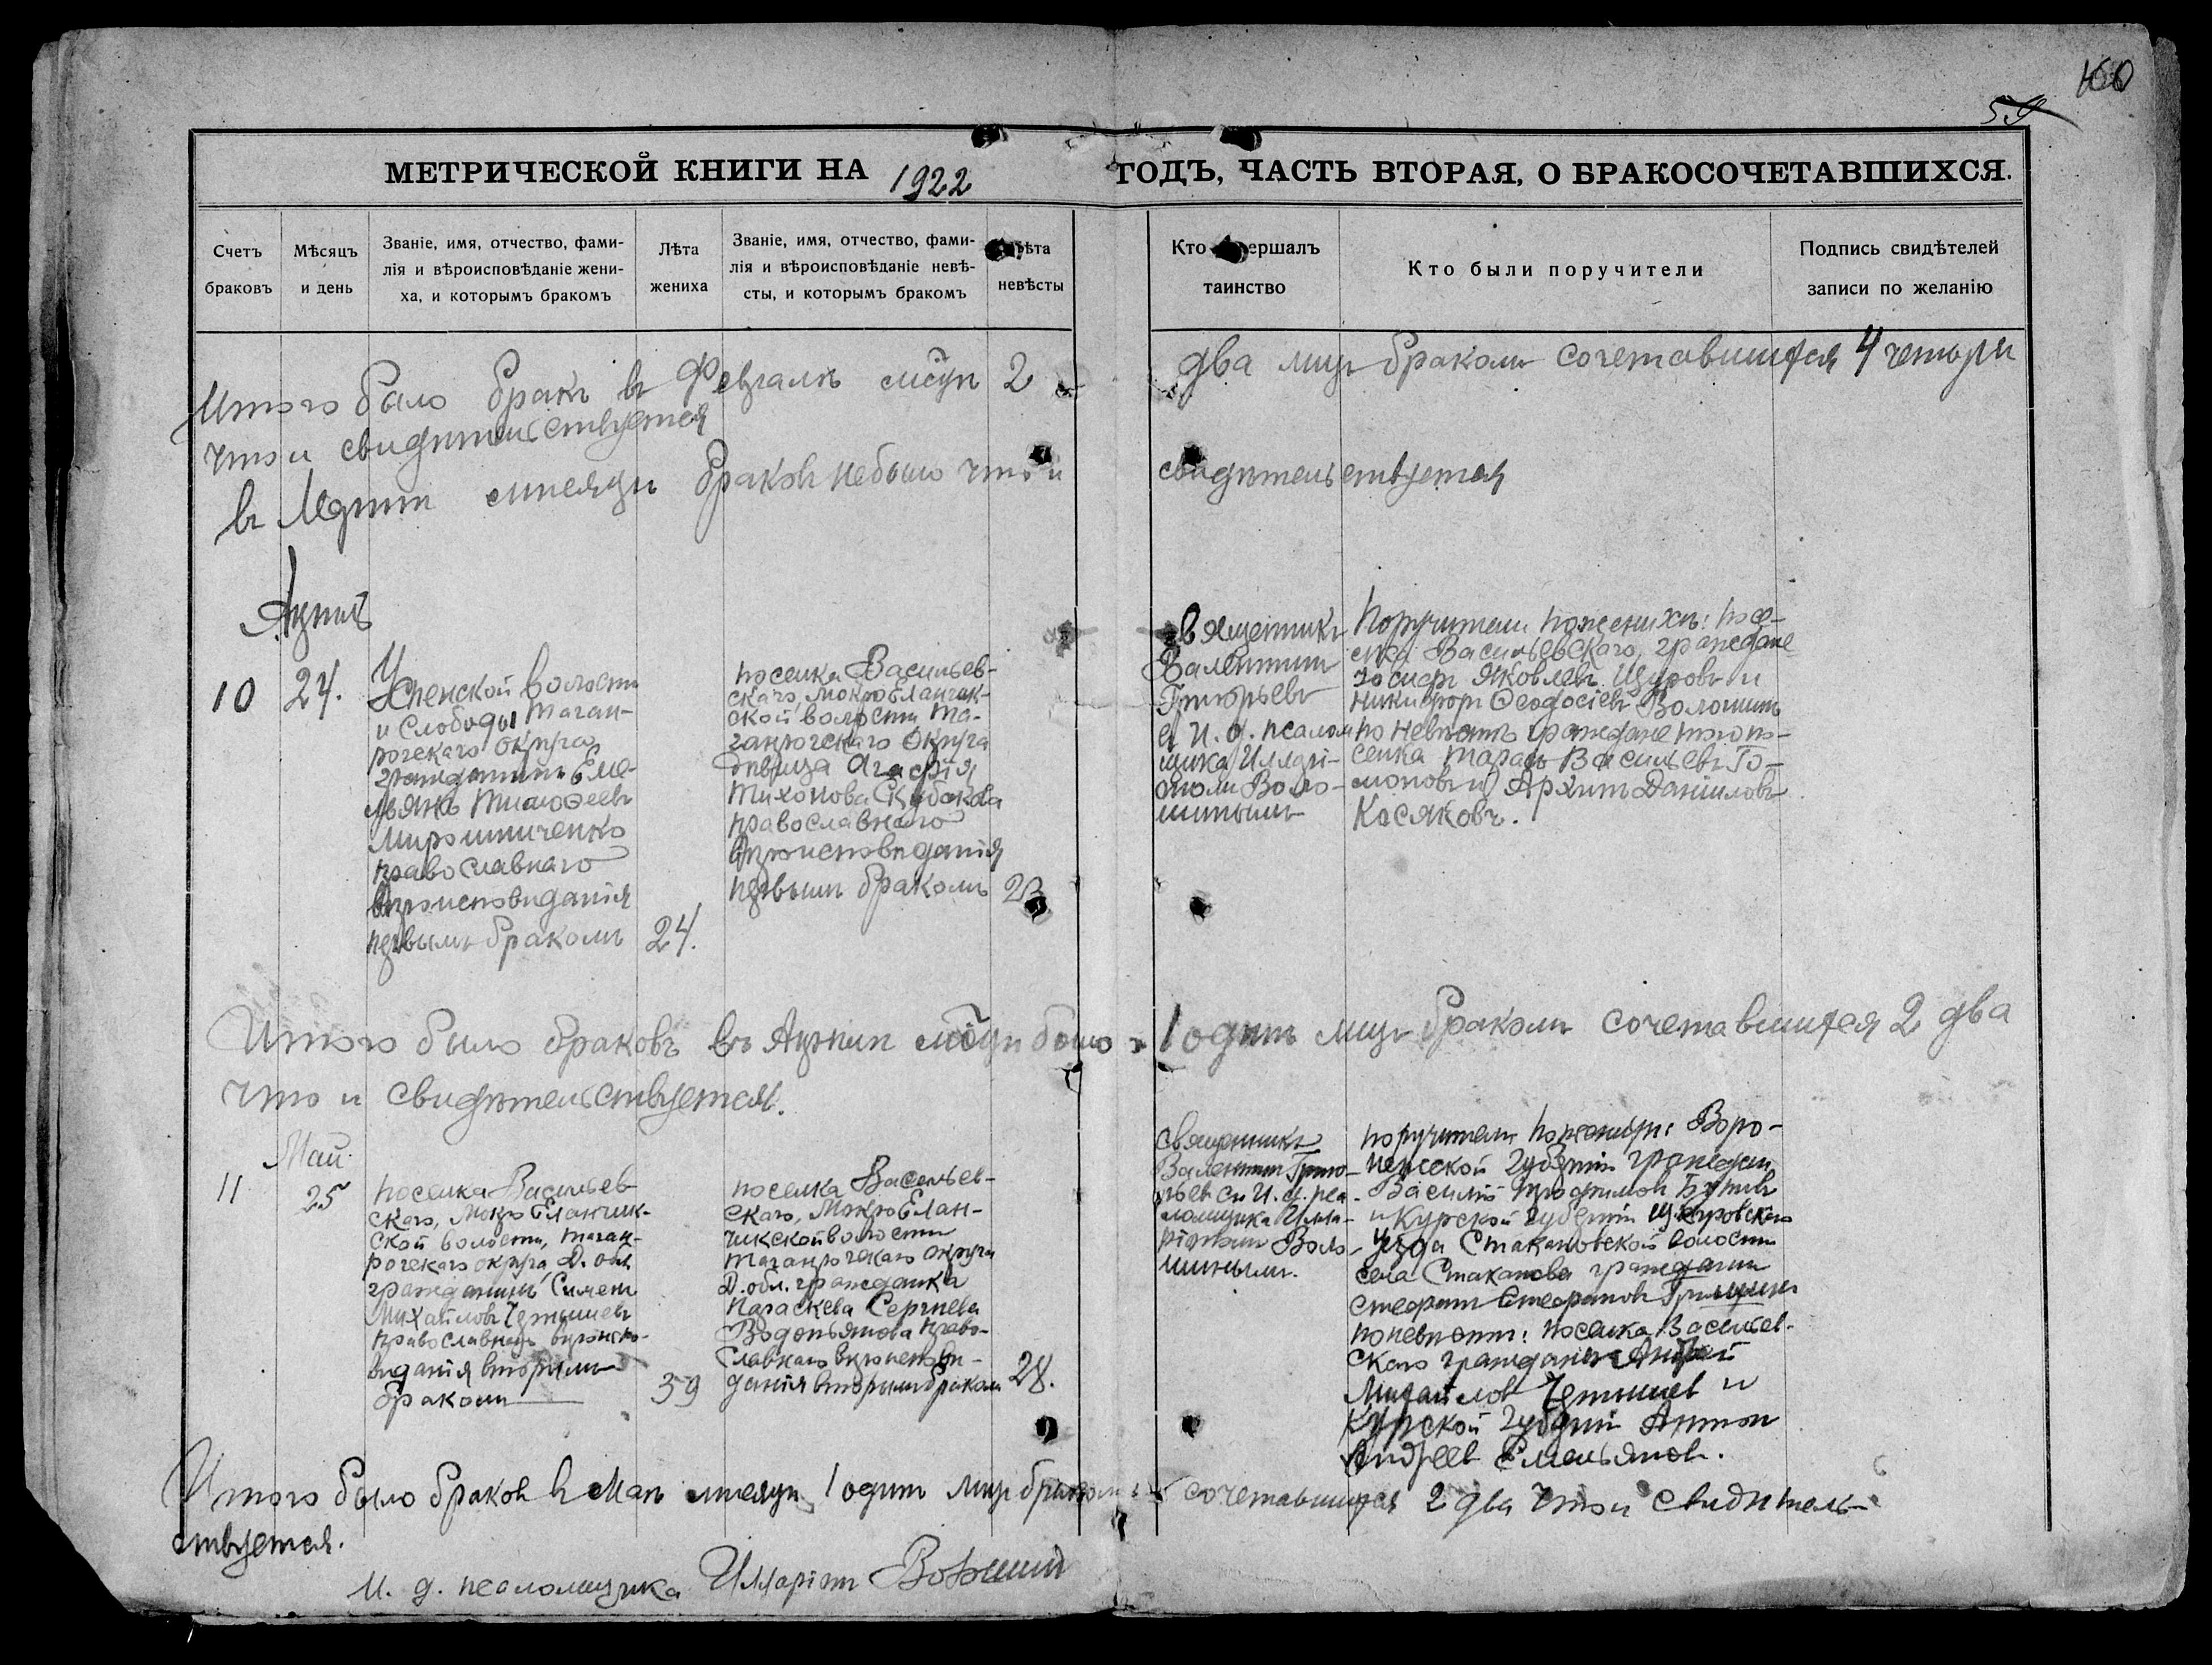 59
МЕТРИЧЕСКОЙ КНИГИ НА 1922 ГОДЪ, ЧАСТЬ ВТОРАЯ, О БРАКОСОЧЕТАВШИХСЯ.
Счетъ
браковъ
Мѣсяцъ
и день
Званіе, имя, отчество, фами-
лія и вѣроисповѣданіе жени-
ха, и которымъ бракомъ
Лѣта
жениха
Званіе, имя, отчество, фами-
лія и вѣроисповѣданіе невѣ-
сты, и которымъ бракомъ
невѣсты
Кто
таинство
Кто были поручители
Подпись свидѣтелей
записи по желанію
Итого было бракъ въ Февралѣ 2 два лицъ бракомъ сочетавшихся 4 четыри
что и свидѣтельствуется
въ Мартѣ мѣсяцѣ браков не было что и свидѣтельствуется
Апрѣль
10
24.
Успенской волости
и Слободы Таган-
рогскаго округа
гражданинъ Еме-
льянъ Тимоѳеевъ
Мирошниченко
православнаго
вѣроисповѣданія
первымъ бракомъ
24.
поселка Васильев-
скаго, Мокро Еланчик-
ской волости Та-
ганрогскаго Округа
дѣвица Агафія
Тихонова Скубакова
православнаго
вѣроисповѣданія
первымъ бракомъ
23
Священникъ
Валентинъ
Григорьевъ
с И. д. псалом-
щика Илларі-
ономъ Воло-
шинымъ
Поручители по женихѣ: посе-
лка Васильевскаго, граждане
Іосифъ Яковлевъ Щуровъ и
Никифоръ Ѳеодосіевъ Волошинъ
по невѣстѣ граждане того по-
селка Тарасъ Васильевъ Го-
моновъ и Архипъ Даниловъ
Косяковъ.
Итого было браковъ въ Апрѣлѣ было 1 одинъ лицъ бракомъ сочетавшихся 2 два
что и свидѣтельствуется.
Май
11
25
поселка Васильев-
скаго, Мокро Еланчик-
ской волости, Таган-
рогскаго округа, Д. обл.
гражданинъ Симеон
Михайловъ Чернышев
православнаго вѣроиспо-
вѣданія вторымъ
бракомъ
39
поселка Васильев-
скаго, Мокро Елан-
чикской волости
Таганрогскаго округа
Д. обл. гражданка
Параскева Сергѣева
Водопьянова право-
славнаго вѣроисповѣ-
данія вторымъ бракомъ
28.
Священникъ
Валентин Григо-
рьев съ И. д. пса-
ломщика Илла-
ріоном Воло-
шинымъ.
поручители по женихѣ: Воро-
нежской губерніи граждан.
Василій Трофимов
и Курской губерніи Щигровскаго
уѣзда Стакановской волости
села Стаканова гражданин
Стефан Стефанов
по невѣстѣ: поселка Васильев-
скаго гражданинъ Андрей
Михайлов Чернышев и
Курской губерніи Антон
Андреев Емельянов.
Итого было браков в Маѣ мѣсяцѣ 1 один лицъ бракомъ сочетавшихся 2 два что и свидѣтель-
ствуется.
И. д. псаломщика Илларіон Волошин